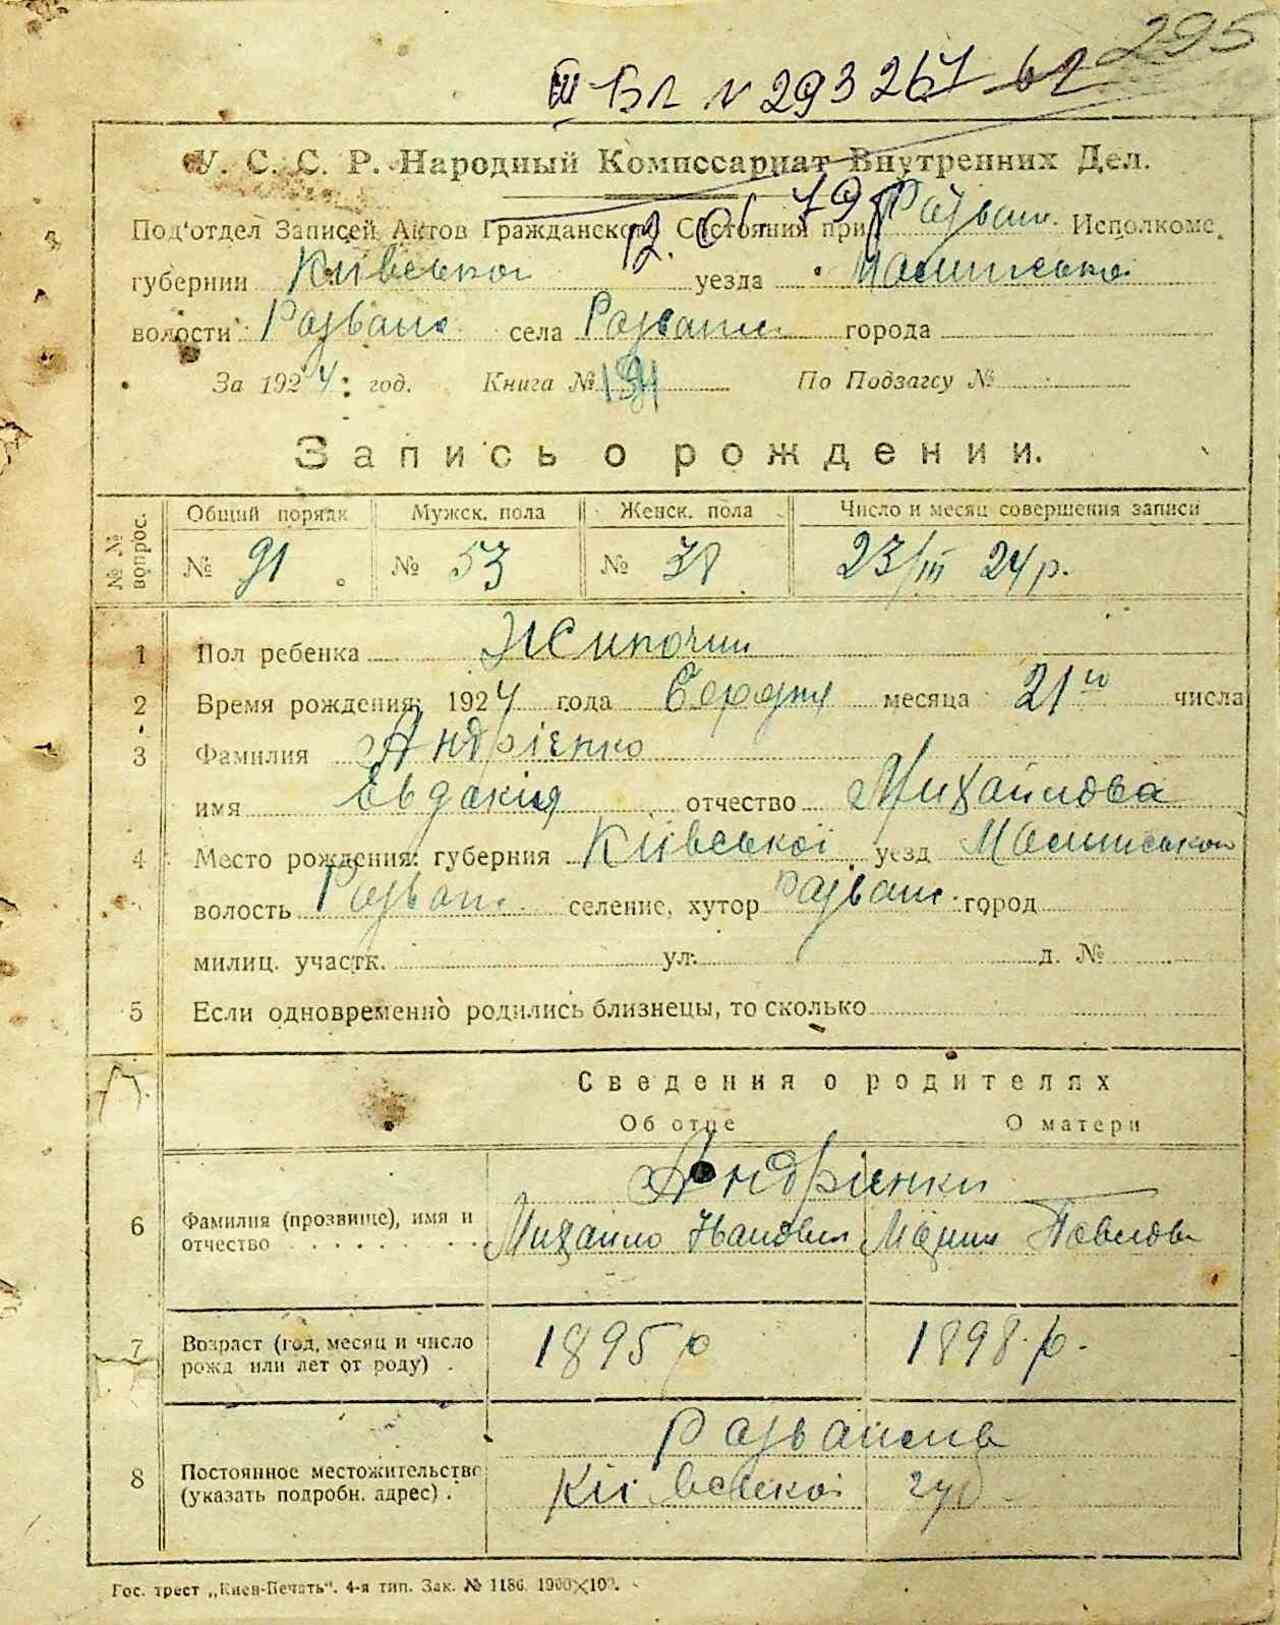 295
III БЛ № 293267
У. С. С. Р. Народный Комиссариат Внутренних Дел.
Под'отдел Записей Актов Гражданского Состояния при Разваж. Исполкоме.
губернии Київської уезда
волости Разваж. села города
За 1924 год. Книга № По Подзагсу №
Запись о рождении.
№№ вопрос. Общий порядк Мужск. пола Женск. пола Число и месяц совершения записи
№ 91 № 53 № 38 23/III 24 р.
1 Пол ребенка Жиночий
2 Время рождения: 1924 года месяца 21го числа
3 Фамилия Андрієнко
имя Евдакия отчество Михайлова
4 Место рождения: губерния Київської уезд
волость Разваж. селение, хутор Разваж. город
милиц. участк. ул. д. №
5 Если одновременно родились близнецы, то сколько
Сведения о родителях
Об отце О матери
Андрієнки
6 Фамилия (прозвище), имя и Михайло
отчество
7 Возраст (год, месяц и число 1895 р 1898 р.
рожд или лет от роду) .
8 Постоянное местожительство
(указать подробн. адрес) . Київської губ.
Гос. трест „Киев-Печать". 4-я тип. Зак. № 1186.